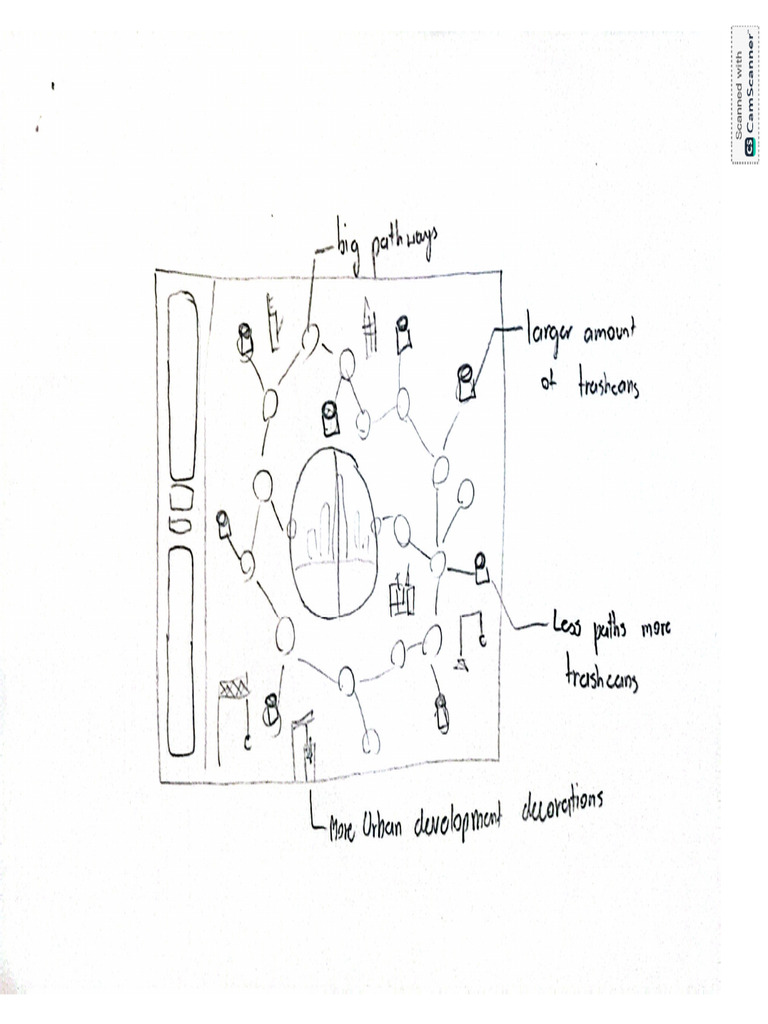 Scanned with
CS CamScanner
big pathways
larger amount
of trashcans
Less paths more
trashcans
More Urban development decorations